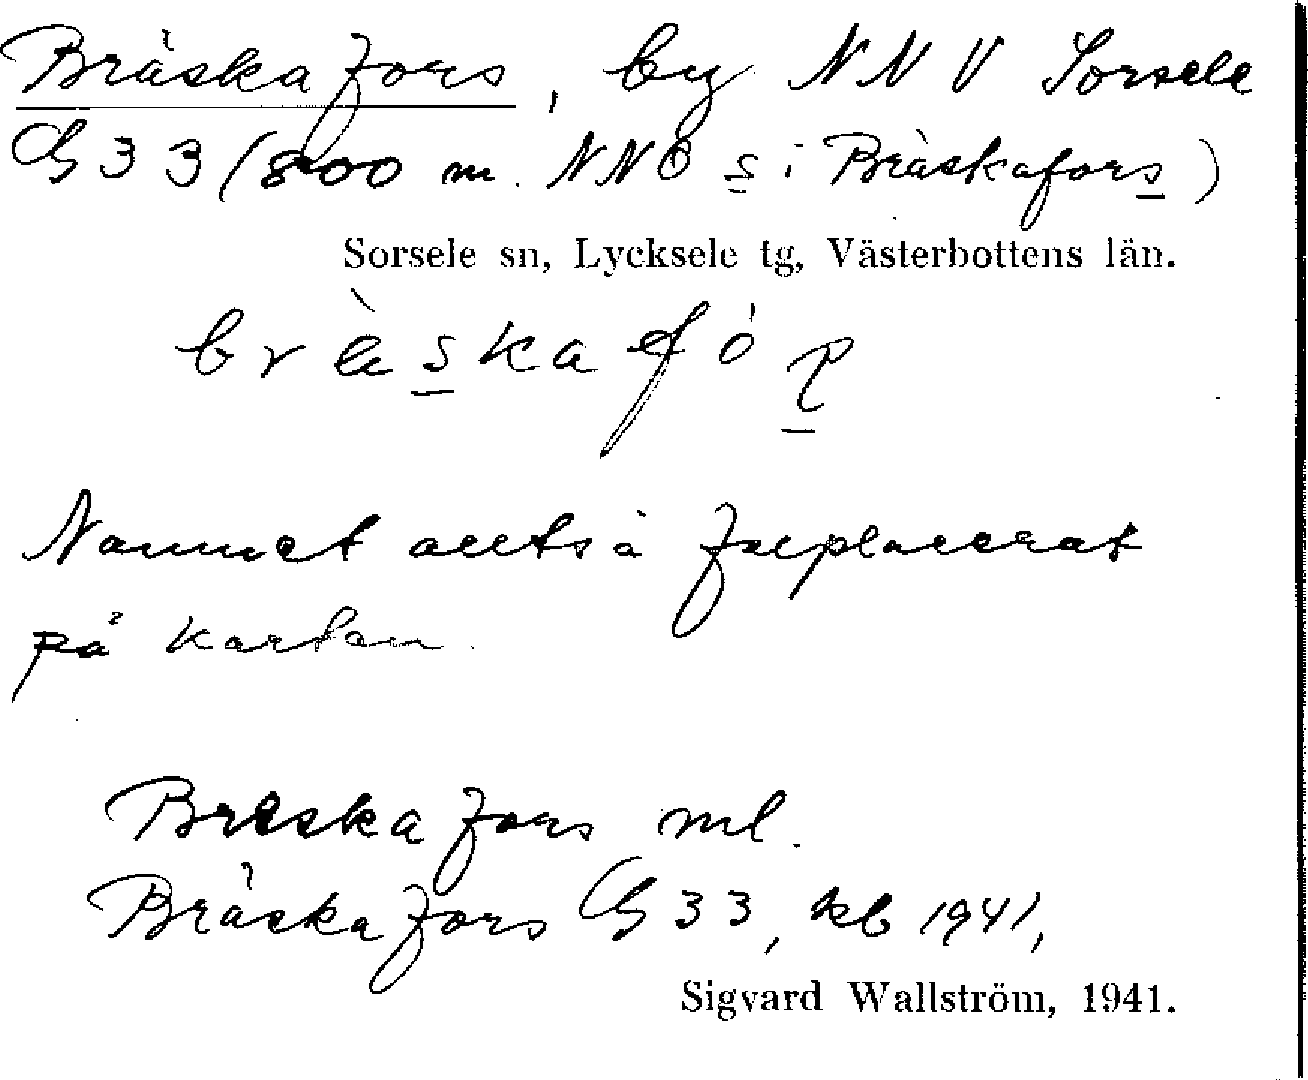 Bräskafors, by NNV Sorsele
G33 (800 m. NNO s i Bräskafors)
Sorsele sn, Lycksele tg, Västerbottens län.
Namnet alltså felplacerat
på kartan.
Breskafors ml.
Bräskafors G33, kb 1941,
Sigvard Wallström, 1941.